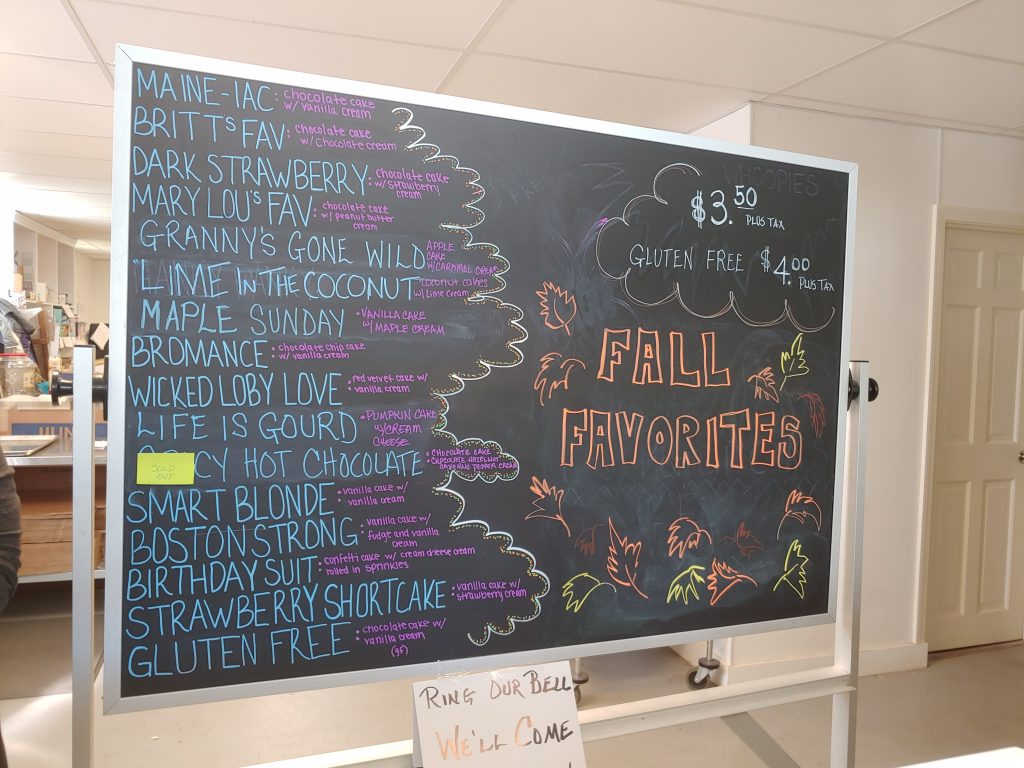 MAINE-IAC: chocolate cake
w/ vanilla cream
BRITT'S FAV: chocolate cake
w/chocolate cream
DARK STRAWBERRY: chocolate cake
w/strawberry
cream
MARY LOU'S FAV: chocolate cake
w/peanut butter
cream
GRANNY'S GONE WILD APPLE
CAKE
w/CARAMEL CREAM
"LIME IN THE COCONUT" coconut cakes
w/ Lime cream
MAPLE SUNDAY • VANILLA CAKE
w/ MAPLE CREAM
BROMANCE: chocolate chip cake
w/ vanilla cream
WICKED LOBY LOVE • red velvet cake w/
vanilla cream
LIFE IS GOURD • PUMPKIN CAKE
w/CREAM
CHEESE
HOT CHOCOLATE • CHOCOLATE CAKE
• CHOCOLATE HAZELNUT
CAYENNE PEPPER CREAM
SOLD
OUT
SMART BLONDE • vanilla cake w/
vanilla cream
BOSTON STRONG • vanilla cake w/
fudge and vanilla
cream
BIRTHDAY SUIT: confetti cake w/ cream cheese cream
rolled in sprinkles
STRAWBERRY SHORTCAKE • vanilla cake w/
strawberry cream
GLUTEN FREE • chocolate cake w/
vanilla cream
(gf)
WHOOPIES
$3.50
PLUS TAX
GLUTEN FREE $4.00
PLUS TAX
FALL
FAVORITES
RING OUR BELL
WE'LL COME